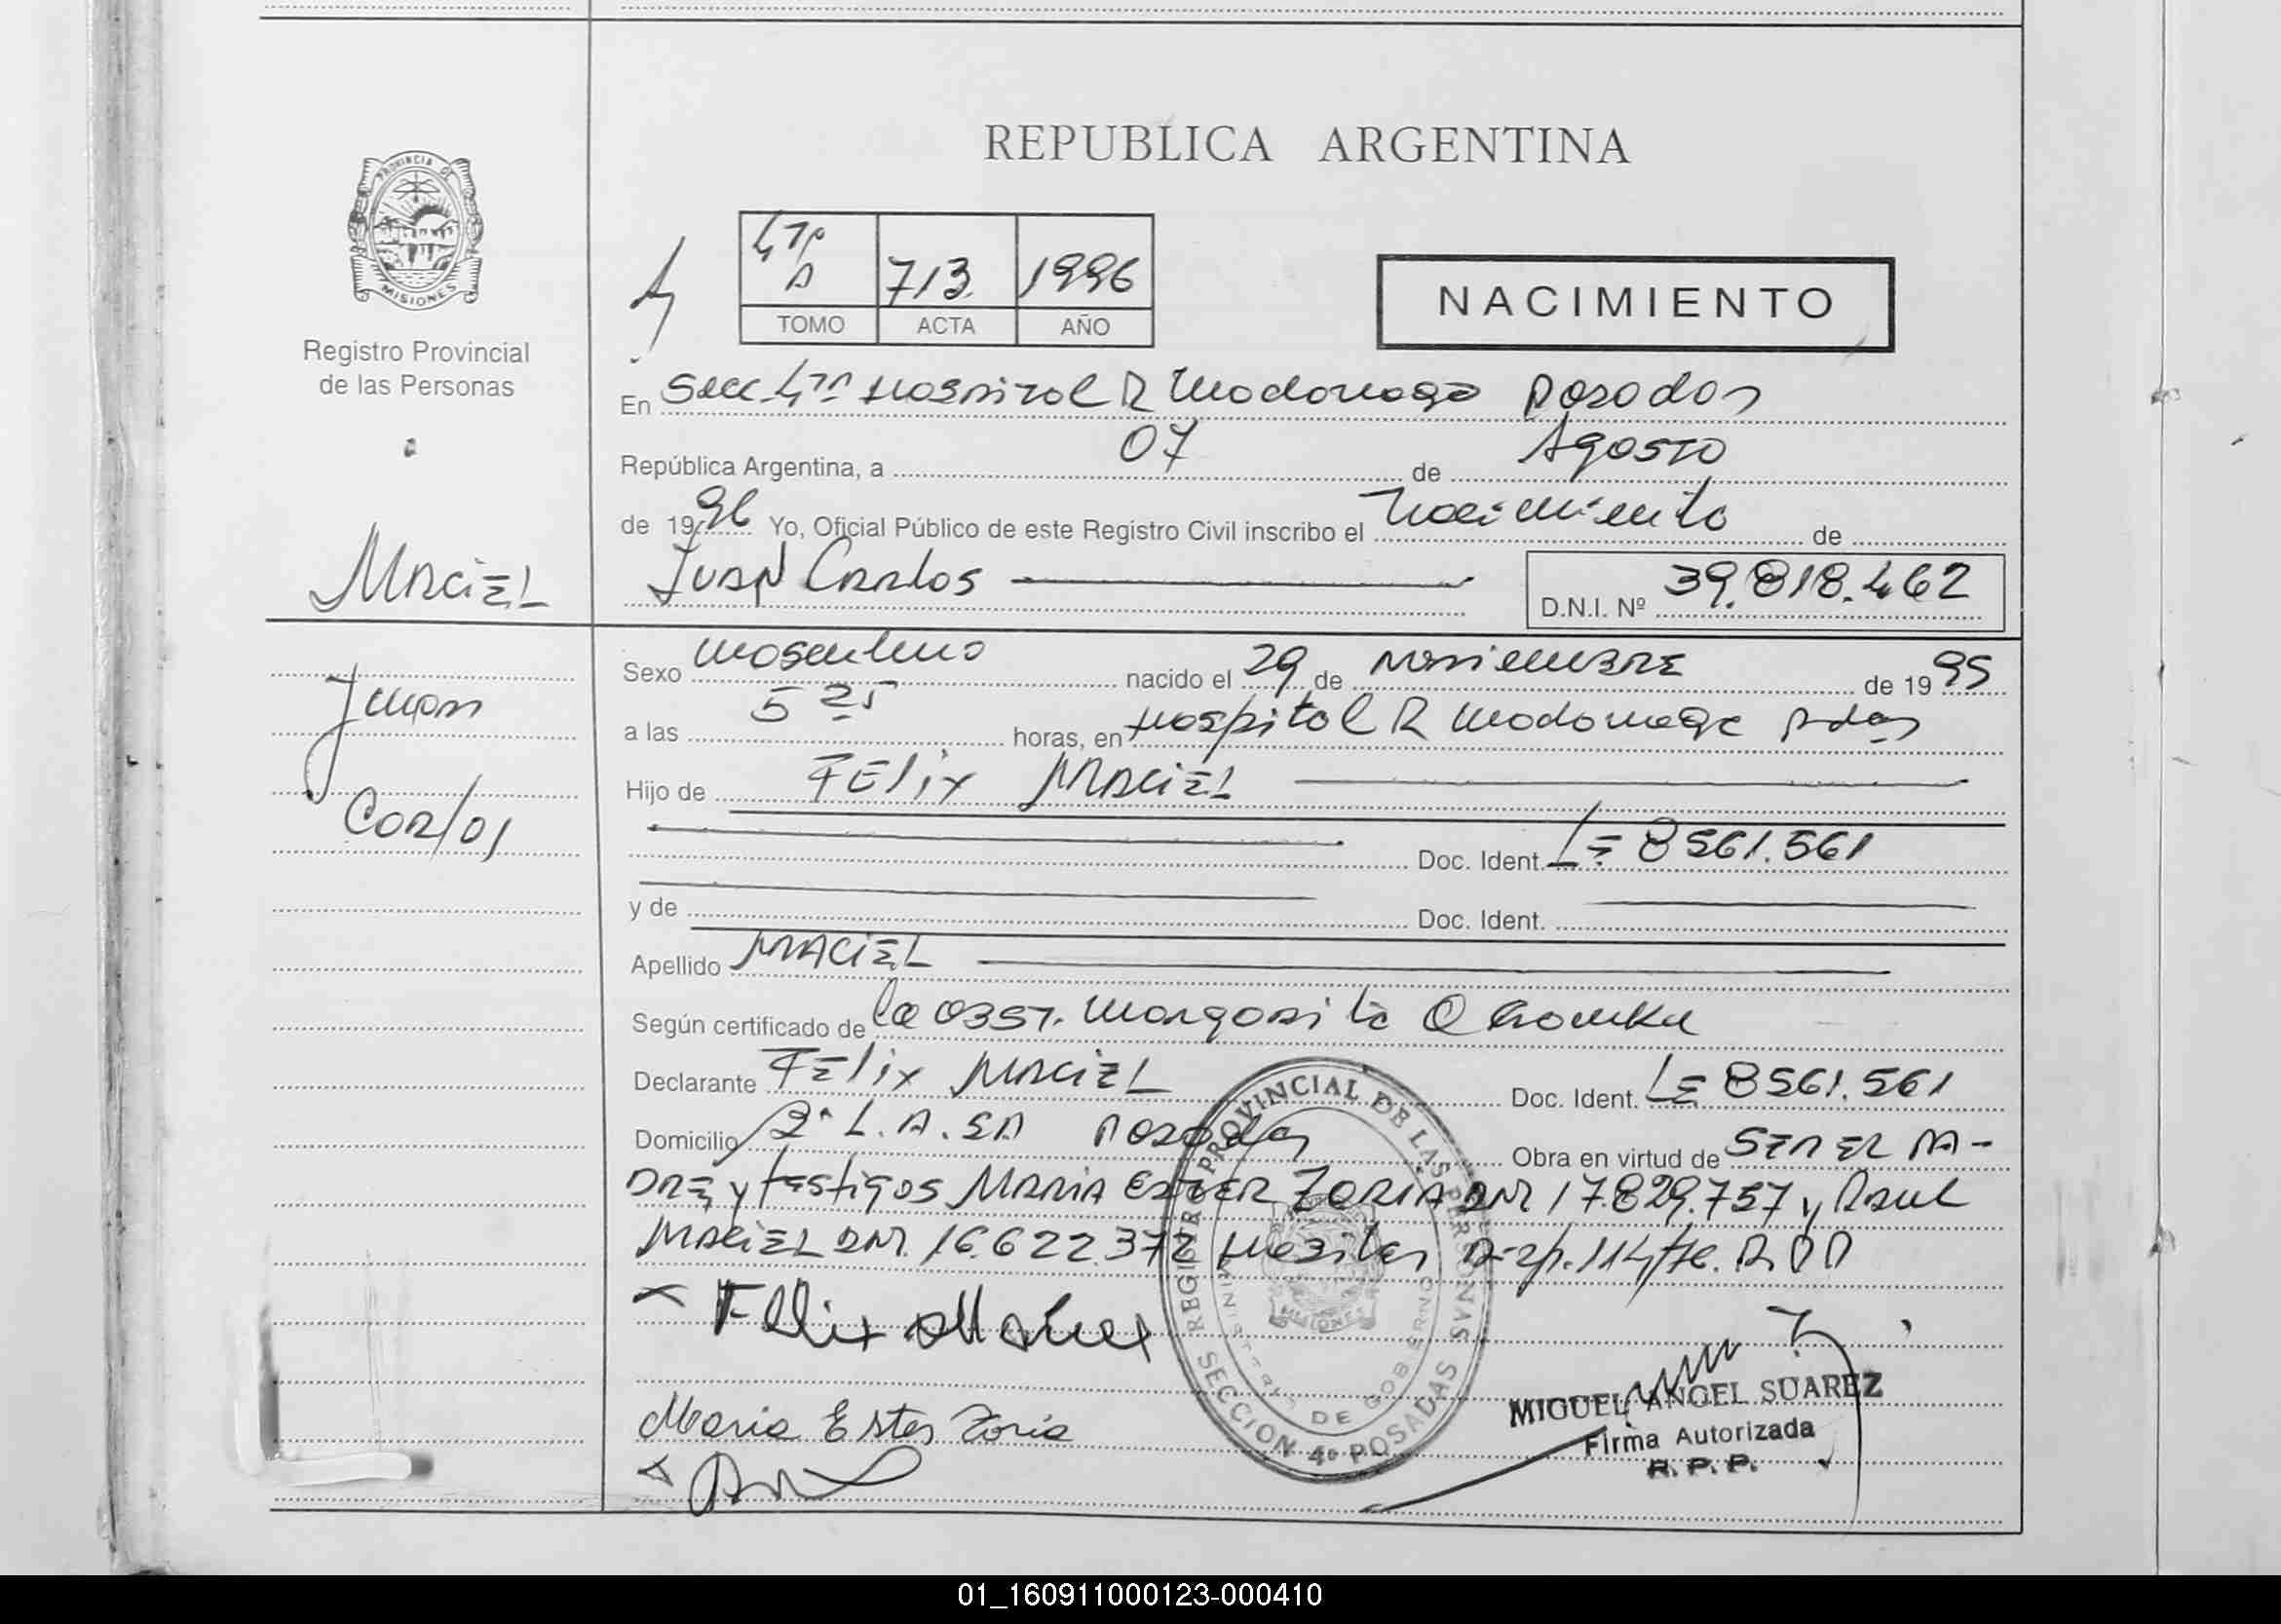 REPUBLICA ARGENTINA
PROVINCIA DE
MISIONES
Registro Provincial
de las Personas
4ta
713 1996
TOMO ACTA AÑO
NACIMIENTO
En Secc. 4ta Hospital R Madariaga Posadas
República Argentina, a 07 de Agosto
de 1996 Yo, Oficial Público de este Registro Civil inscribo el Nacimiento de
Maciel
Juan Carlos
D.N.I. Nº 39.818.462
Juan
Carlos
Sexo masculino nacido el 29 de Noviembre de 1995
a las 5 25 horas, en Hospital R Madariaga Pdas
Hijo de Felix Maciel
Doc. Ident. LE 8561.561
y de Doc. Ident.
Apellido Maciel
Según certificado de la Obst. Margarita
Declarante Felix Maciel Doc. Ident. LE 8561.561
Domicilio Posadas Obra en virtud de Ser el Pa-
dre y testigos Maria Ester Zoria DNI 17.829.757 y Raul
Maciel DNI. 16.622.372 Disp. 114/96.
Felix
Maria Ester Zoria
REGISTRO PROVINCIAL DE LAS PERSONAS
MINISTERIO DE GOBIERNO
MISIONES
SECCION 4º POSADAS
MIGUEL ANGEL SUAREZ
Firma Autorizada
R. P. P.
01_160911000123-000410